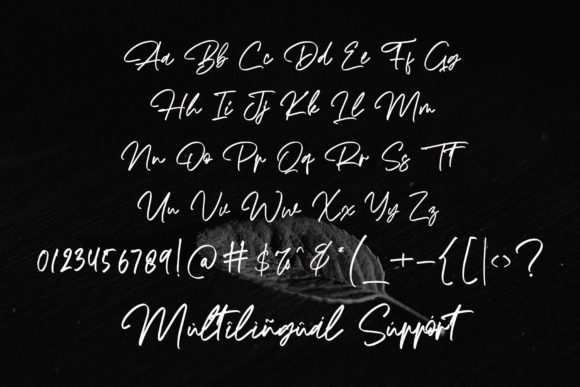 Aa Bb Cc Dd Ee Ff Gg
Hh Ii Jj Kk Ll Mm
Nn Oo Pp Qq Rr Ss Tt
Uu Vv Ww Xx Yy Zz
0123456789!@#$%^&*(_+-{[|<>?
Mùltîlíñgüál Súppórt